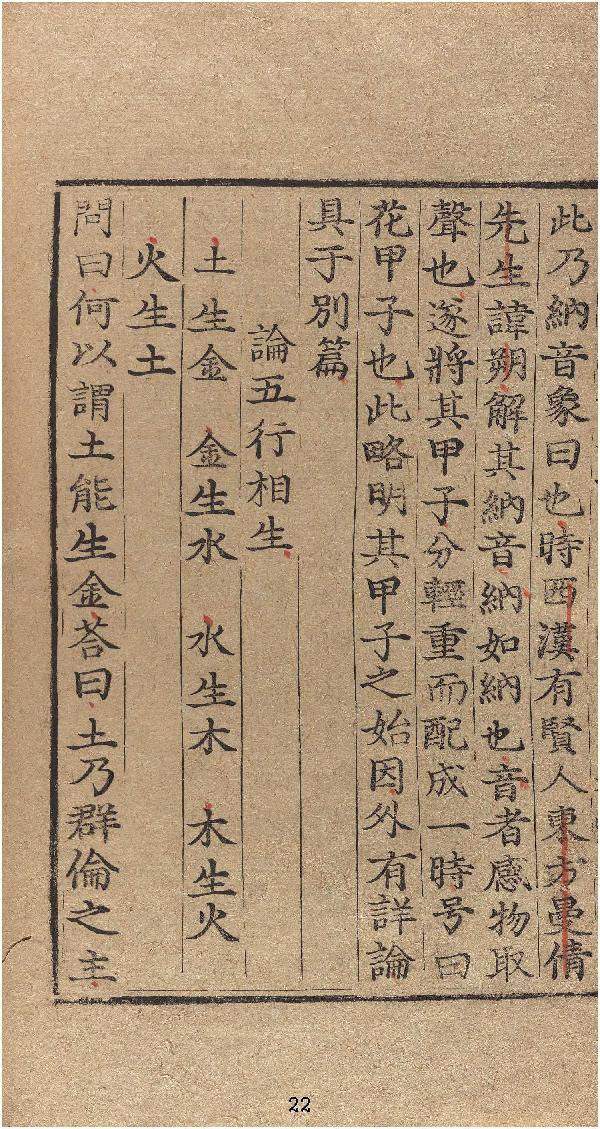 此乃納音象曰也時西漢有賢人東方曼倩
先生諱朔解其納音納如納也音者感物取
聲也遂將其甲子分輕重而配成一時号曰
花甲子也此略明其甲子之始因外有詳論
具于別篇
論五行相生
土生金 金生水 水生木 木生火
火生土
問曰何以謂土能生金荅曰土乃群倫之主
22